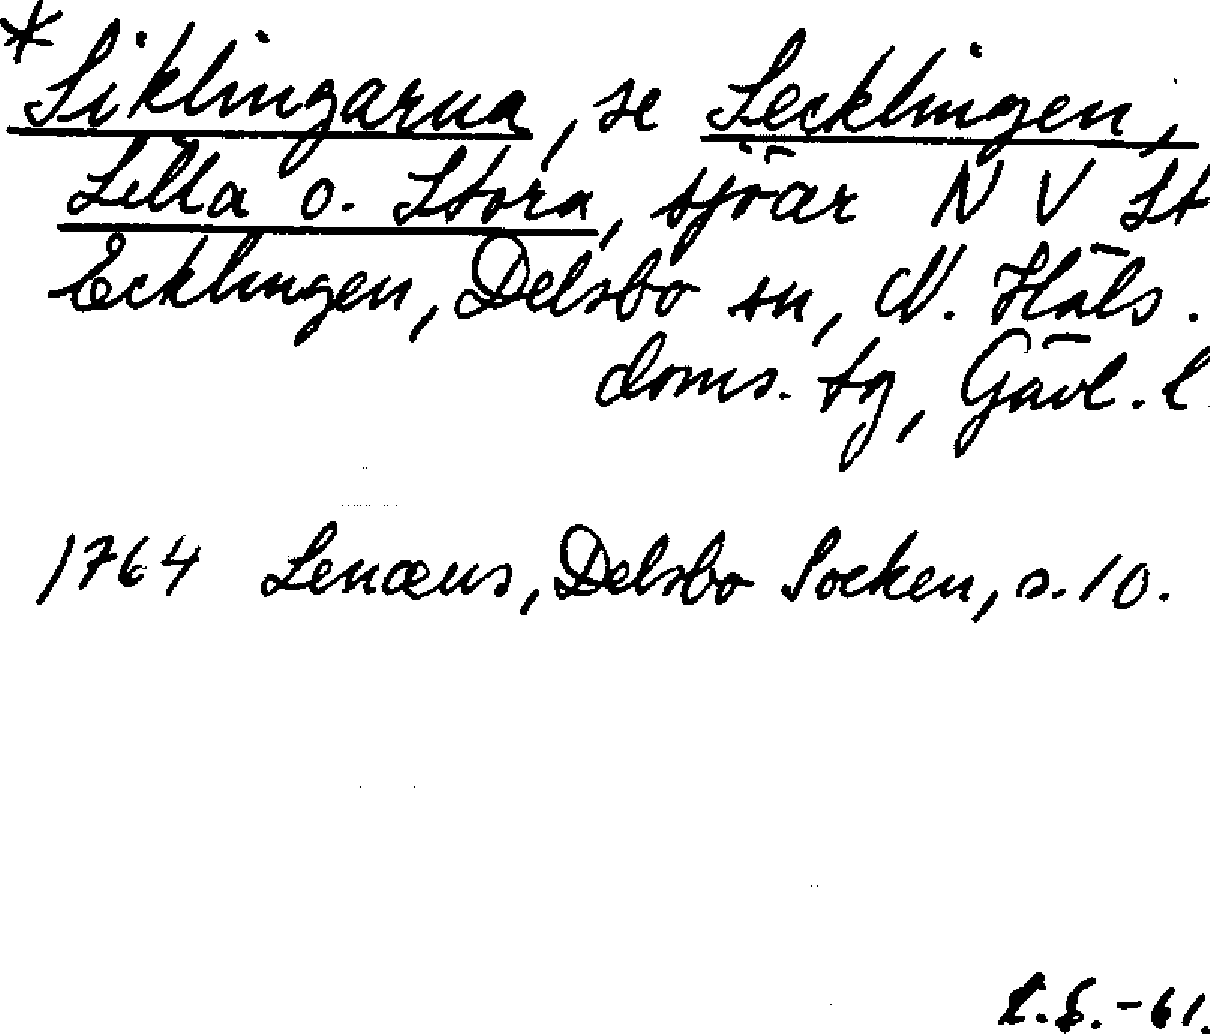 * Siklingarna, se Secklingen,
Lilla o. Stora, sjöar NV St
Ecklingen, Delsbo sn, N. Häls.
doms. tg, Gävl. l.
1764 Lenæus, Delsbo Socken, s. 10.
L.S.-61.